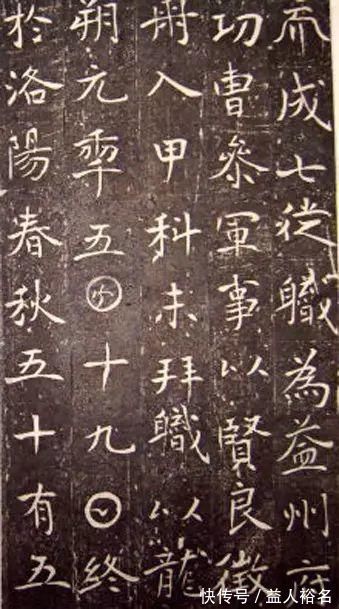 而成七從職為益州府
功曹參軍事以賢良徵
冊入甲科未拜職以龍
朔元𠡦五囝十九𡆠終
於洛陽春秋五十有五
快传号/益人裕名